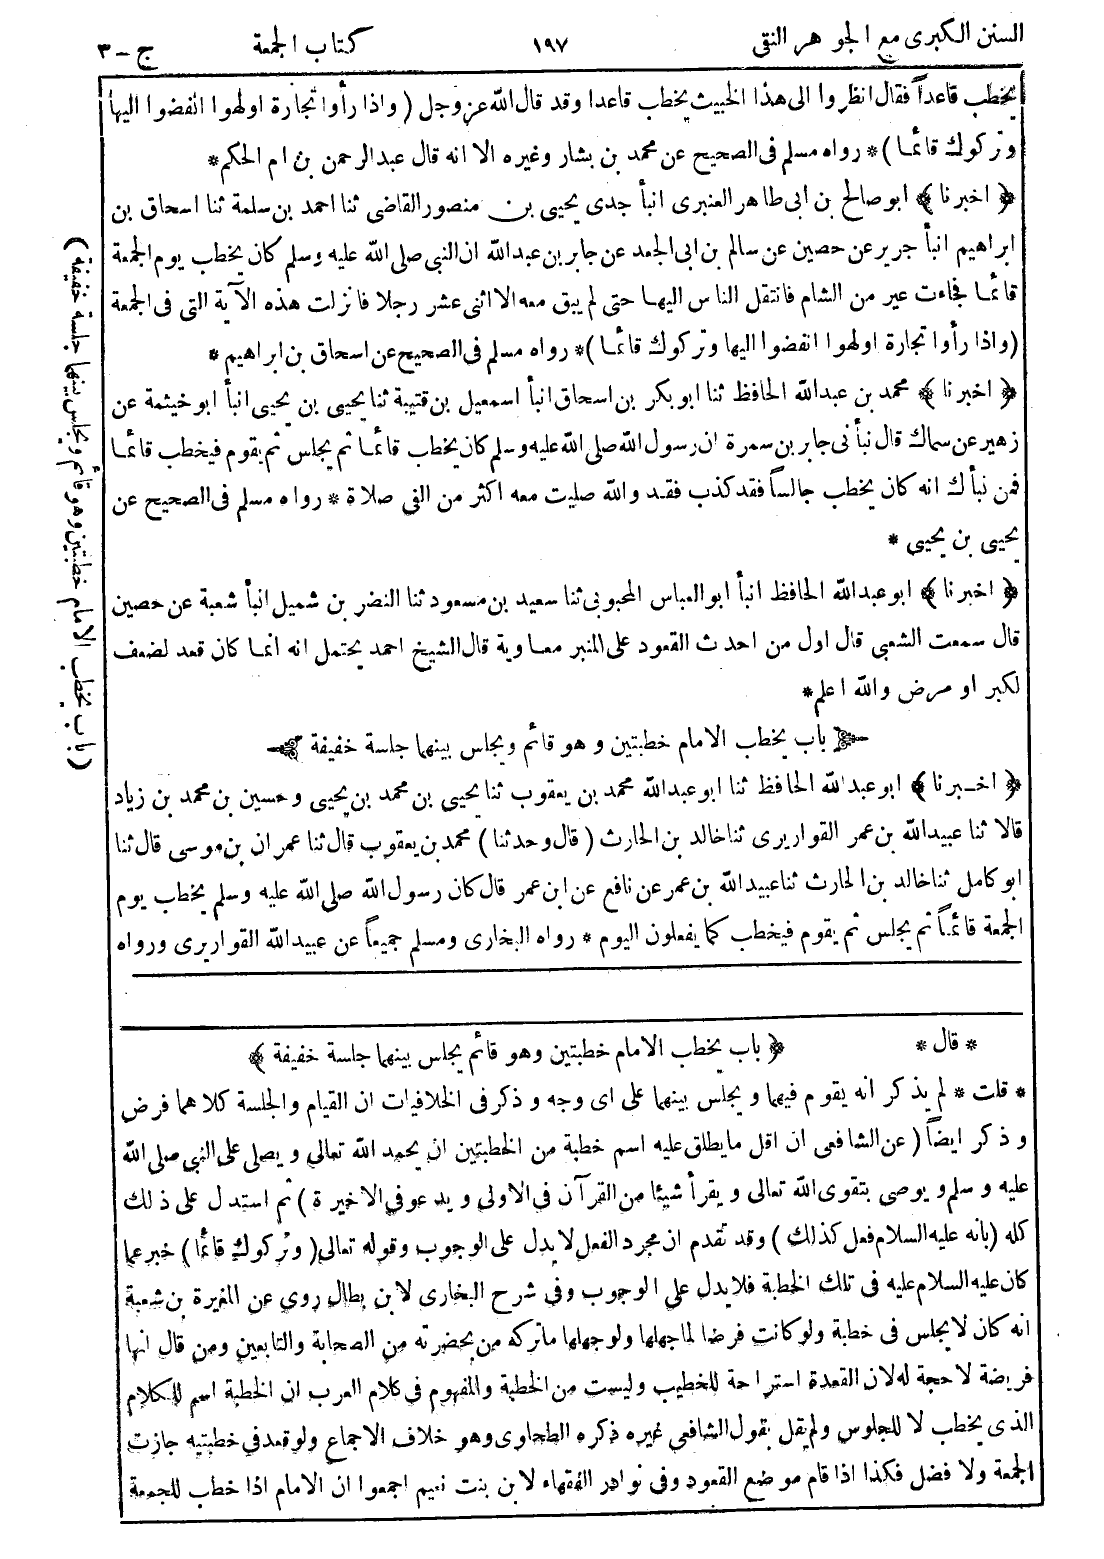 السنن الكبرى مع الجوهر النقى ١٩٧ كتاب الجمعة ج - ٣
يخطب قاعداً فقال انظروا الى هذا الخبيث يخطب قاعدا وقد قال الله عز وجل ( واذا رأوا تجارة اولهوا انفضوا اليها
وتركوك قائما ) * رواه مسلم فى الصحيح عن محمد بن بشار وغيره الا انه قال عبدالرحمن بن ام الحكم *
﴿ اخبرنا ﴾ ابوصالح بن ابى طاهر العنبرى انبأ جدى يحيى بن منصور القاضى ثنا احمد بن سلمة ثنا اسحاق بن
ابراهيم انبأ جرير عن حصين عن سالم بن ابى الجعد عن جابر بن عبدالله ان النبى صلى الله عليه وسلم كان يخطب يوم الجمعة
قائما فجاءت عير من الشام فانتقل الناس اليها حتى لم يبق معه الا اثنى عشر رجلا فانزلت هذه الآية التى فى الجمعة
( واذا رأوا تجارة اولهوا انفضوا اليها وتركوك قائما ) * رواه مسلم فى الصحيح عن اسحاق بن ابراهيم *
﴿ اخبرنا ﴾ محمد بن عبدالله الحافظ ثنا ابوبكر بن اسحاق انبأ اسمعيل بن قتيبة ثنا يحيى بن يحيى انبأ ابوخيثمة عن
زهير عن سماك قال نبأنى جابر بن سمرة ان رسول الله صلى الله عليه وسلم كان يخطب قائما ثم يجلس ثم يقوم فيخطب قائما
فمن نبأك انه كان يخطب جالساً فقد كذب فقد والله صليت معه اكثر من الفى صلاة * رواه مسلم فى الصحيح عن
يحيى بن يحيى *
﴿ اخبرنا ﴾ ابوعبدالله الحافظ انبأ ابوالعباس المحبوبى ثنا سعيد بن مسعود ثنا النضر بن شميل انبأ شعبة عن حصين
قال سمعت الشعبى قال اول من احدث القعود على المنبر معاوية قال الشيخ احمد يحتمل انه انما كان قعد لضعف
لكبر او مرض والله اعلم *
باب يخطب الامام خطبتين وهو قائم ويجلس بينهما جلسة خفيفة
﴿ اخبرنا ﴾ ابوعبدالله الحافظ ثنا ابوعبدالله محمد بن يعقوب ثنا يحيى بن محمد بن يحيى وحسين بن محمد بن زياد
قالا ثنا عبيدالله بن عمر القواريرى ثنا خالد بن الحارث ( قال وحدثنا ) محمد بن يعقوب قال ثنا عمران بن موسى قال ثنا
ابوكامل ثنا خالد بن الحارث ثنا عبيدالله بن عمر عن نافع عن ابن عمر قال كان رسول الله صلى الله عليه وسلم يخطب يوم
الجمعة قائماً ثم يجلس ثم يقوم فيخطب كما يفعلون اليوم * رواه البخارى ومسلم جميعاً عن عبيدالله القواريرى ورواه
( باب يخطب الامام خطبتين وهو قائم ويجلس بينهما جلسة خفيفة )
* قال * ﴿ باب يخطب الامام خطبتين وهو قائم يجلس بينهما جلسة خفيفة ﴾
* قلت * لم يذكر انه يقوم فيهما ويجلس بينهما على اى وجه وذكر فى الخلافيات ان القيام والجلسة كلاهما فرض
وذكر ايضاً ( عن الشافعى ان اقل ما يطلق عليه اسم خطبة من الخطبتين ان يحمد الله تعالى ويصلى على النبى صلى الله
عليه وسلم ويوصى بتقوى الله تعالى ويقرأ شيئا من القرآن فى الاولى ويدعو فى الاخيرة ) ثم استدل على ذلك
كله ( بانه عليه السلام فعل كذلك ) وقد تقدم ان مجرد الفعل لا يدل على الوجوب وقوله تعالى ( وتركوك قائما ) خبر عما
كان عليه السلام عليه فى تلك الخطبة فلا يدل على الوجوب وفى شرح البخارى لابن بطال روى عن المغيرة بن شعبة
انه كان لا يجلس فى خطبة ولو كانت فرضا لما جهلها ولو جهلها ما تركه من بحضرته من الصحابة والتابعين ومن قال انها
فريضة لا حجة له لان القعدة استراحة للخطيب وليست من الخطبة والمفهوم فى كلام العرب ان الخطبة اسم للكلام
الذى يخطب لا للجلوس ولم يقل بقول الشافعى غيره ذكره الطحاوى وهو خلاف الاجماع ولو قعد فى خطبتيه جازت
الجمعة ولا فضل فكذا اذا قام موضع القعود وفى نوادر الفقهاء لابن بنت نعيم اجمعوا ان الامام اذا خطب للجمعة